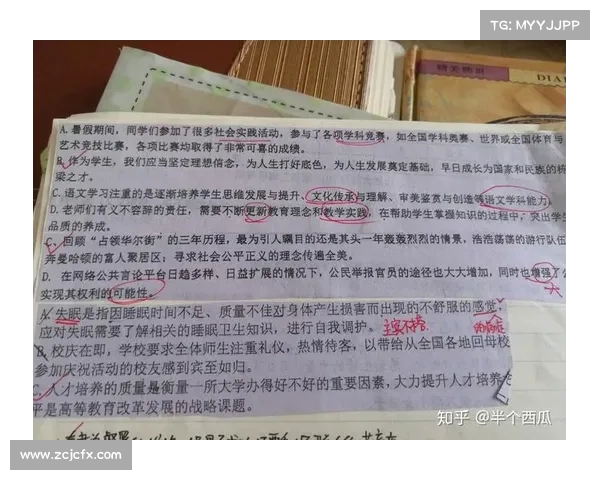 TG: MYYJJPP
精美绝世
DIA
A. 暑假期间，同学们参加了很多社会实践活动，参与了各项学科竞赛，如全国学科奥赛、世界或全国体育与
艺术竞技比赛，各项比赛均取得了非常可喜的成绩。
B. 作为学生，我们应当坚定理想信念，为人生打好底色，为人生发展奠定基础，早日成长为国家和民族的栋
梁之才。
C. 语文学习注重的是逐渐培养学生思维发展与提升、文化传承与理解、审美鉴赏与创造等语文学科能力。
D. 老师们有义不容辞的责任，需要不断更新教育理念和教学实践，在帮助学生掌握知识的过程中，突出学生
品质的养成。
C. 回顾“占领华尔街”的三年历程，最为引人瞩目的还是其头一年轰轰烈烈的情景，浩浩荡荡的游行队伍
奔曼哈顿的富人聚居区；寻求社会公平正义的理念传遍全美。
D. 在网络公共言论平台日趋多样、日益扩展的情况下，公民举报官员的途径也大大增加，同时也增强了公
实现其权利的可能性。
大
A. 失眠是指因睡眠时间不足、质量不佳对身体产生损害而出现的不舒服的感觉
应对失眠需要了解相关的睡眠卫生知识，进行自我调护。
B. 校庆在即，学校要求全体师生注重礼仪，热情待客，以带给从全国各地回母校
参加庆祝活动的校友感到宾至如归。
C. 人才培养的质量是衡量一所大学办得好不好的重要因素，大力提升人才培养
平是高等教育改革发展的战略课题。
知乎 @半个西瓜
www.zcjcfx.com